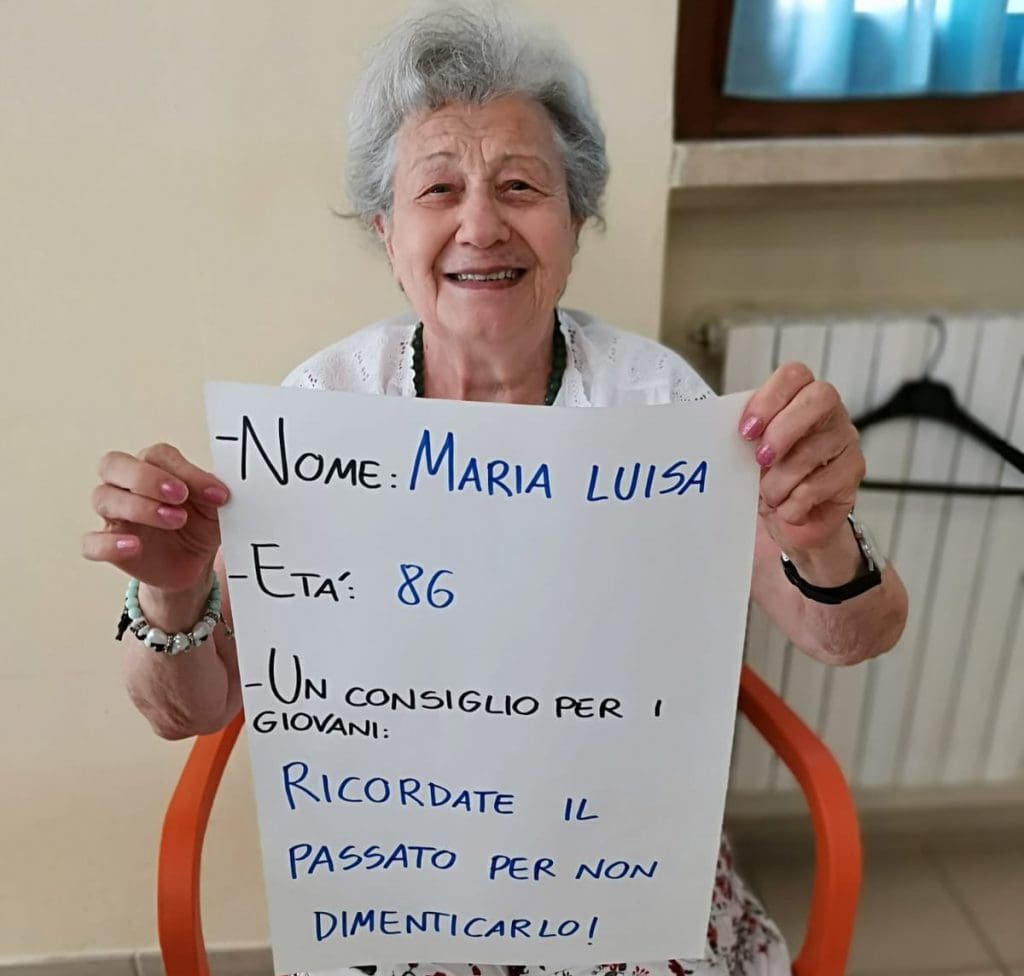 -NOME: MARIA LUISA
-ETÀ: 86
-UN CONSIGLIO PER I
GIOVANI:
RICORDATE IL
PASSATO PER NON
DIMENTICARLO!